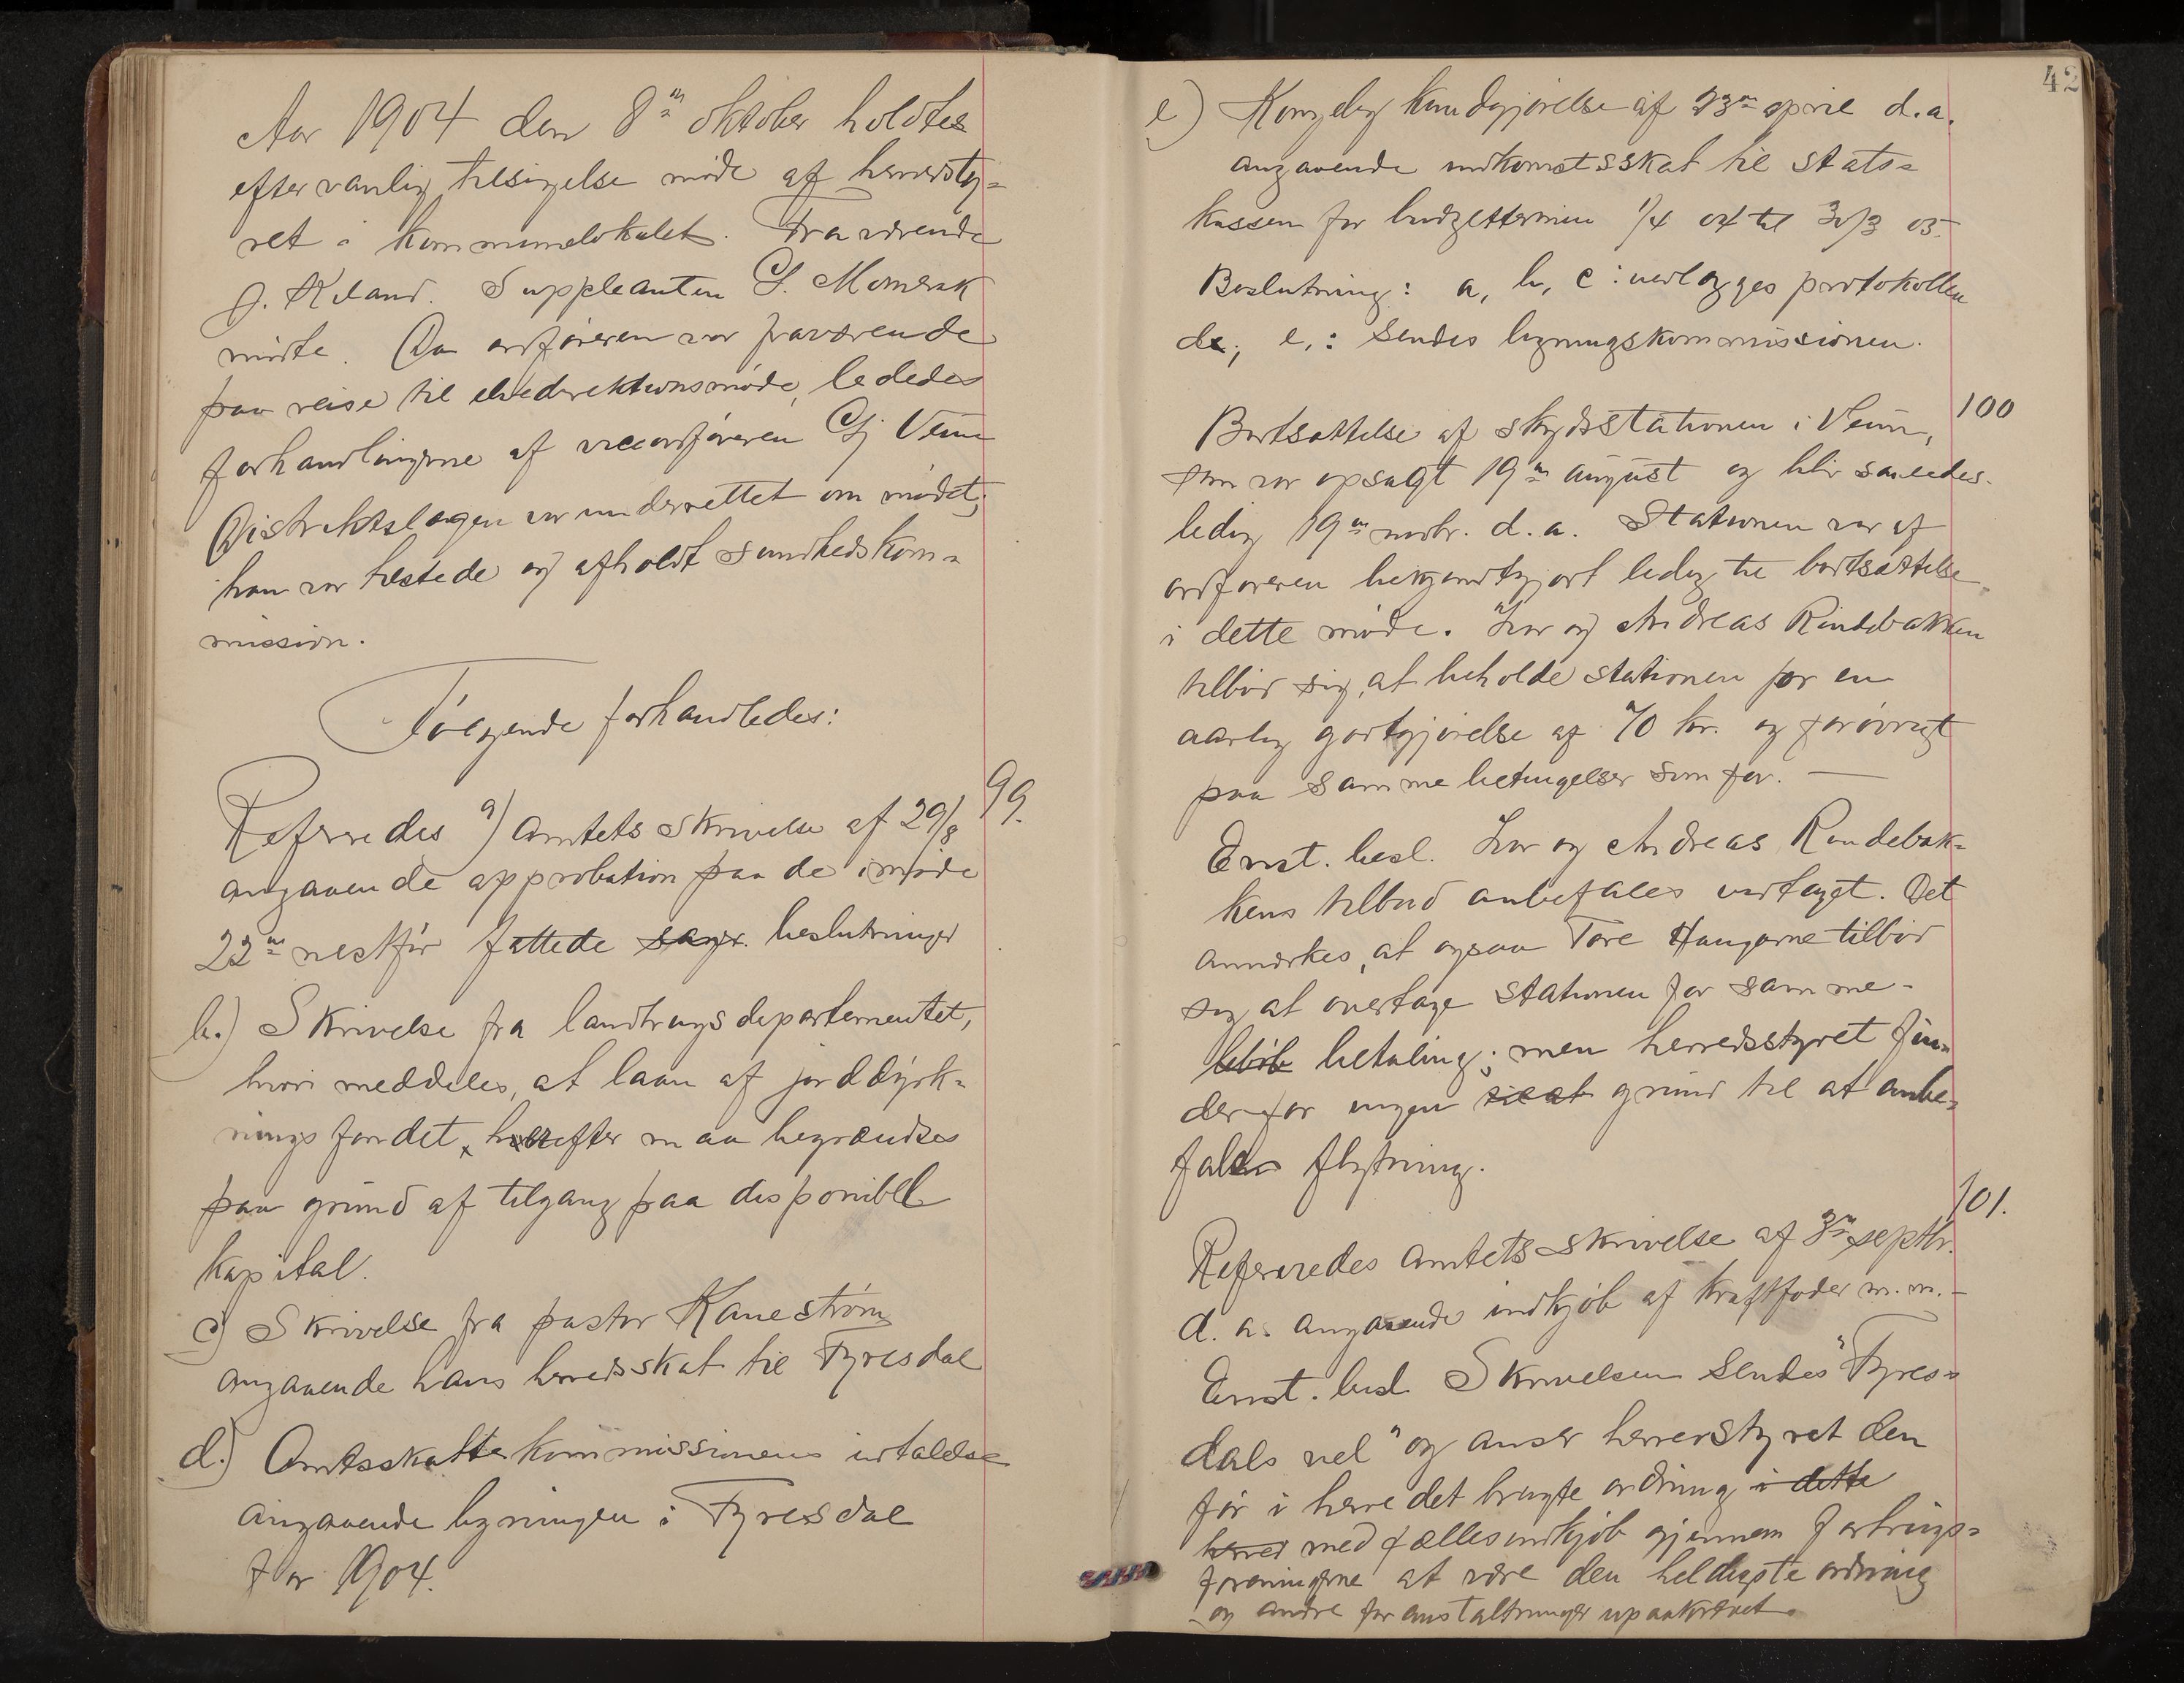 Aar 1904 den 8de oktober holdtes
efter vanlig tilsigelse møde af herredsty-
ret i kommunelokalet. Fraværende
J. Kiland. Suppleanten G. Momrak
mødte. Da ordføreren var fraværende
paa reise til veiedirektionsmøde, lededes
forhandlingerne af viceordføreren Gj Veum
Distriktslægen var underrettet om mødet;
han var tilstede og afholdt sundhedskom-
mission.
Følgende forhandledes:
99.
Refereredes a) amtets skrivelse af 29/8
angaaende approbation paa de i møde
22de nestfør fattede sager. beslutninger
b.) Skrivelse fra landbrugsdepartementet,
hvori meddeles, at laan af jorddyrk-
ningsfondet, herefter maa begrændses
paa grund af tilgang paa disponibel
kapital.
c) Skrivelse fra pastor Kaneström
angaaende hans herredsskat til Fyresdal
d.) Amtsskattekommissionens udtalelse
angaaende ligningen i Fyresdal
for 1904.
42
e) Kongelig kundgjørelse af 23de april d.a.
angaaende indkomstsskat til stats-
kassen for budgetterminen 1/4 04 til 30/3 05.
Beslutning: a, b, c: vedlægges protokollen
d, e,: sendes ligningskommissionen.
100
Bortsættelse af skydsstationen i Veum,
som var opsagt 19de august og blir saaledes
ledig 19de novbr. d.a. Stationen var af
ordføreren bekjendtgjort ledig til bortsættelse
i dette møde. Ivar og Andreas Rindebakken
tilbød sig, at beholde stationen for en
aarlig godtgjørelse af 70 kr. og forøvrigt
paa samme betingelser som før. —
Enst. besl. Ivar og Andreas Rindebak-
kens tilbud anbefales vedtaget. Det
anmærkes, at ogsaa Tore Haugarne tilbød
sig at overtage stationen for samme
beløb betaling; men herredsstyret fin-
der for ingen til at grund til at anbe-
fale flytning.
101.
Refereredes amtets skrivelse af 3de septbr.
d. a. angaaende indkjøb af kraftfoder m.m. -
Enst. besl. Skrivelsen sendes "Fyres-
dals vel" og anser herredstyret den
før i herredet brugte ordning i dette
herred med fællesindkjøb gjennem forbrugs-
foreningerne at være den heldigste ordning
og andre foranstaltninger upaakrævet.